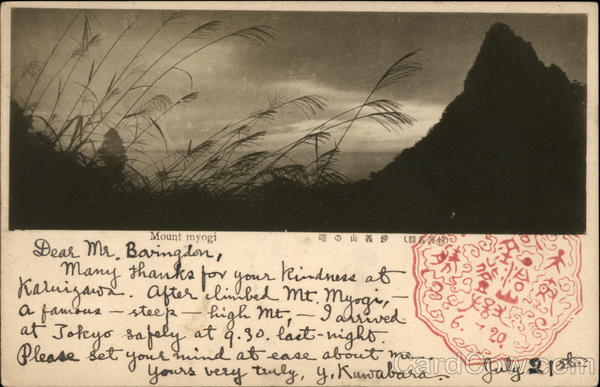 Mount myogi
（妙義名勝） 妙義山の曙
Dear Mr. Bovingdon,
Many thanks for your kindness at
Karuizawa. After climbed Mt. Myogi, —
a famous — steep — high Mt, — I arrived
at Tokyo safely at 9.30 last-night.
Please set your mind at ease about me.
Yours very truly, Y. Kuwabara. July 21st
6. -.20
CardCow.com